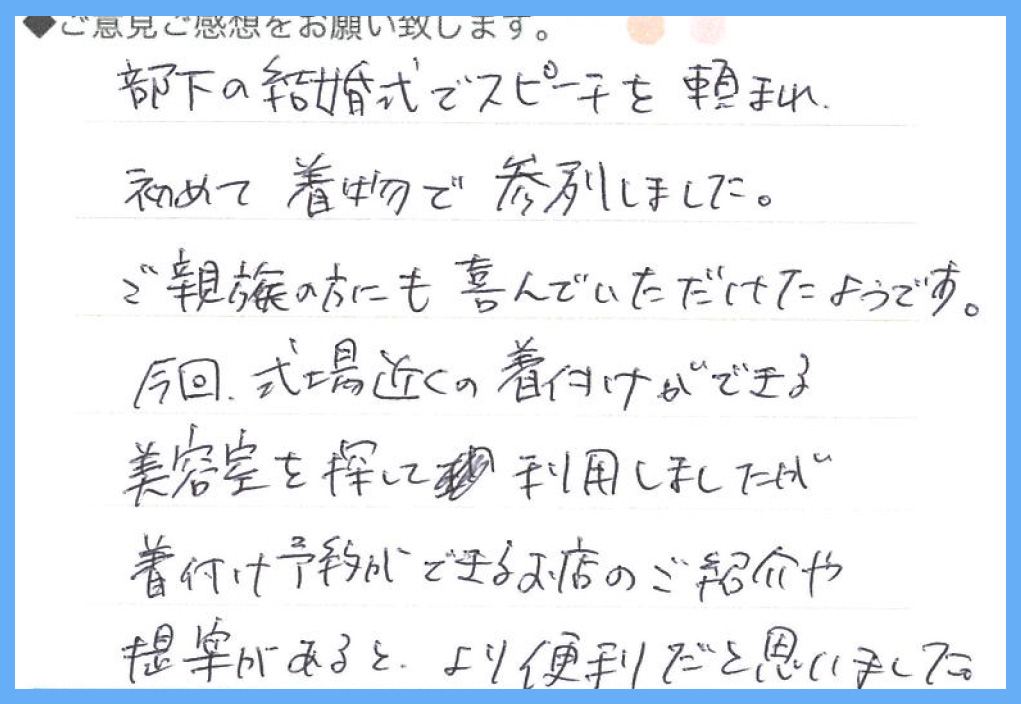 ◆ご意見ご感想をお願い致します。
部下の結婚式でスピーチを頼まれ、
初めて着物で参列しました。
ご親族の方にも喜んでいただけたようです。
今回、式場近くの着付けができる
美容室を探して利用しましたが
着付け予約ができるお店のご紹介や
提案があると、より便利だと思いました。